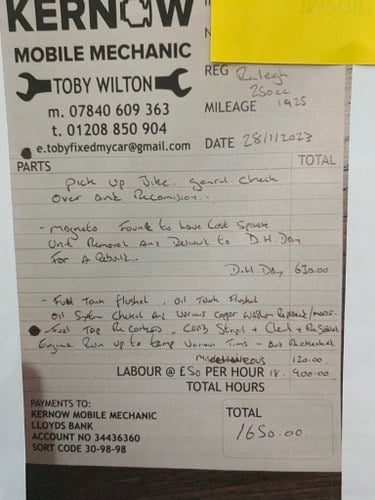 KERNOW
MOBILE MECHANIC
TOBY WILTON
m. 07840 609 363
t. 01208 850 904
e.tobyfixedmycar@gmail.com
REG Raleigh
250cc
MILEAGE 1925
DATE 28/1/2023
PARTS TOTAL
Pick up Bike. general check
over and Recomision..
- Magneto Found to have Lost Spark
Unit Removed And Deliverd to D.H. Day
For A Rebuild..
D.H. Day 630.00
- Fuel Tank flushed, Oil Tank Flushed
Oil System Checked And Various Copper Washers
Fuel Tap Re Corked, Carb Striped + Cleaned +
Engine Run up to temp Various Times - And Rechecked
Miscellaneous 120.00
LABOUR @ £50 PER HOUR 18. 900.00
TOTAL HOURS
PAYMENTS TO:
KERNOW MOBILE MECHANIC
LLOYDS BANK
ACCOUNT NO 34436360
SORT CODE 30-98-98
TOTAL
1650.00